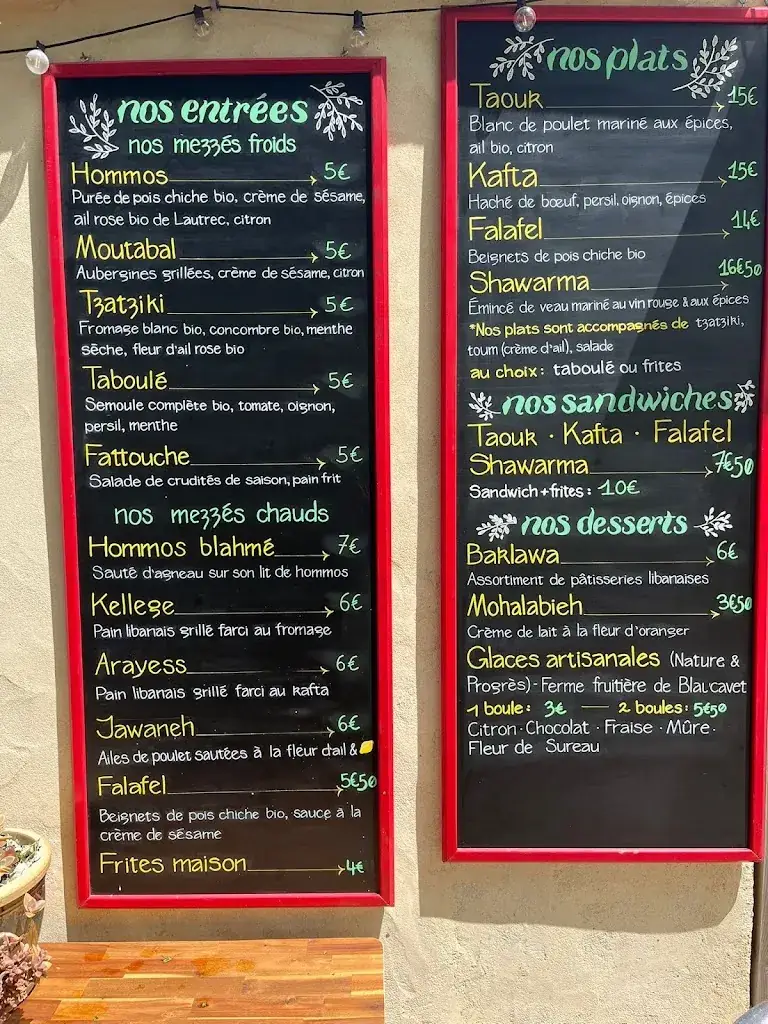 nos entrées
nos mezzés froids
Hommos 5€
Purée de pois chiche bio, crème de sésame,
ail rose bio de Lautrec, citron
Moutabal 5€
Aubergines grillées, crème de sésame, citron
Tzatziki 5€
Fromage blanc bio, concombre bio, menthe
sèche, fleur d'ail rose bio
Taboulé 5€
Semoule complète bio, tomate, oignon,
persil, menthe
Fattouche 5€
Salade de crudités de saison, pain frit
nos mezzés chauds
Hommos blahmé 7€
Sauté d'agneau sur son lit de hommos
Kellege 6€
Pain libanais grillé farci au fromage
Arayess 6€
Pain libanais grillé farci au kafta
Jawaneh 6€
Ailes de poulet sautées à la fleur d'ail &
Falafel 5€50
Beignets de pois chiche bio, sauce à la
crème de sésame
Frites maison 4€
nos plats
Taouk 15€
Blanc de poulet mariné aux épices,
ail bio, citron
Kafta 15€
Haché de bœuf, persil, oignon, épices
Falafel 14€
Beignets de pois chiche bio
Shawarma 16€50
Émincé de veau mariné au vin rouge & aux épices
*Nos plats sont accompagnés de tzatziki,
toum (crème d'ail), salade
au choix: taboulé ou frites
nos sandwiches
Taouk · Kafta · Falafel
Shawarma 7€50
Sandwich + frites: 10€
nos desserts
Baklawa 6€
Assortiment de pâtisseries libanaises
Mohalabieh 3€50
Crème de lait à la fleur d'oranger
Glaces artisanales (Nature &
Progrès) - Ferme fruitière de
1 boule: 3€ — 2 boules: 5€50
Citron · Chocolat · Fraise · Mûre ·
Fleur de Sureau